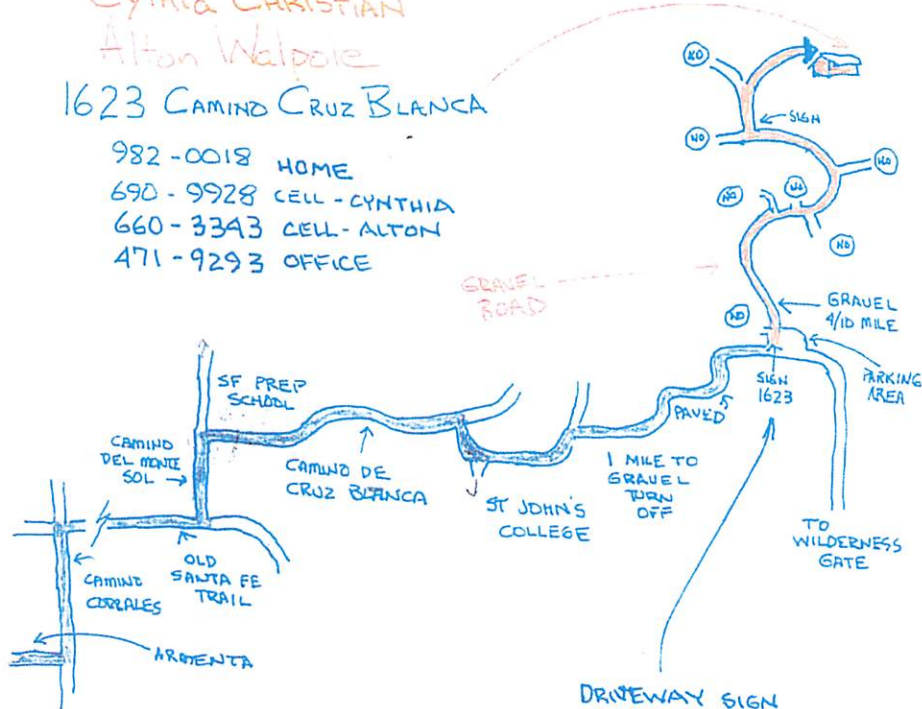 Cynthia CHRISTIAN
Alton Walpole
1623 CAMINO CRUZ BLANCA
982-0018 HOME
690-9928 CELL-CYNTHIA
660-3343 CELL-ALTON
471-9293 OFFICE
NO
SIGN
NO
NO
NO
NO
NO
GRAVEL
ROAD
NO
GRAVEL
4/10 MILE
PARKING
AREA
SIGN
1623
PAVED
SF PREP
SCHOOL
CAMINO
DEL MONTE
SOL
CAMINO DE
CRUZ BLANCA
1 MILE TO
GRAVEL
TURN
OFF
ST JOHN'S
COLLEGE
TO
WILDERNESS
GATE
OLD
SANTA FE
TRAIL
CAMINO
CORRALES
ARMENTA
DRIVEWAY SIGN